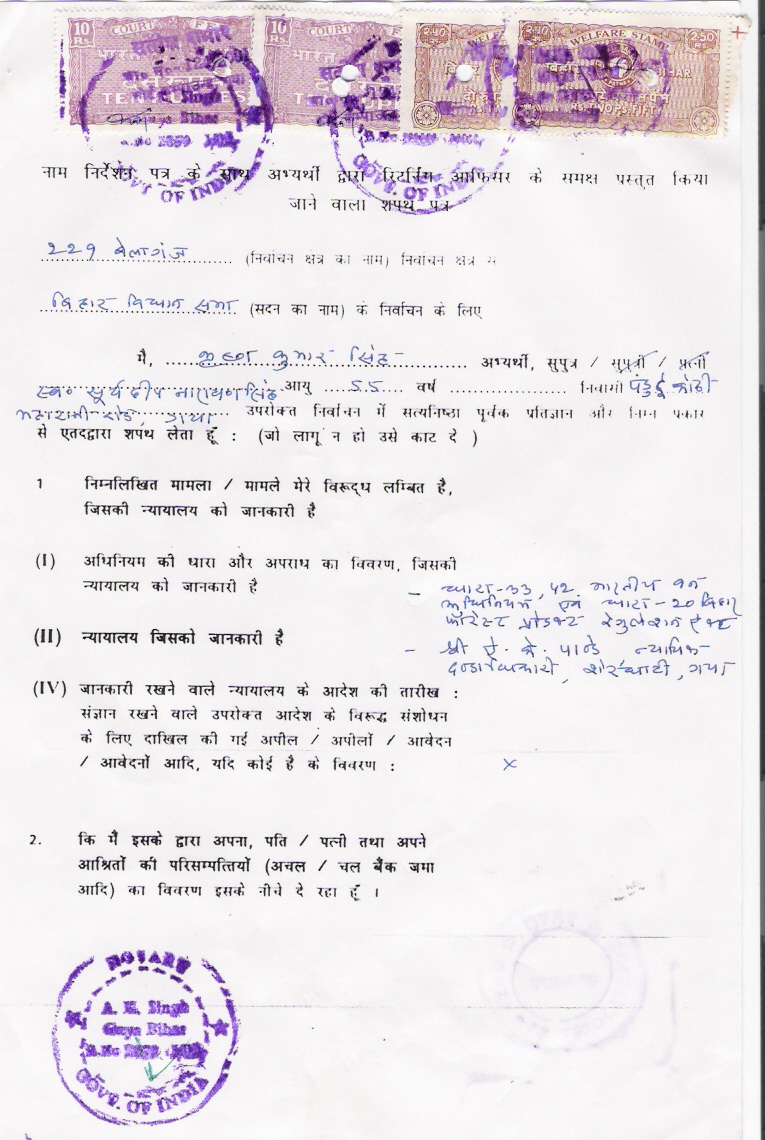 10 Rs.
COURT FEE
COURT FEE
10 Rs.
WELFARE STAMP
2.50 Rs.
BIHAR
GOVT OF INDIA
GOVT. OF INDIA
नाम निर्देशन पत्र के साथ अभ्यर्थी द्वारा रिटर्निंग आफिसर के समक्ष प्रस्तुत किया
जाने वाला शपथ पत्र
229 बेलागंज (निर्वाचन क्षेत्र का नाम) निर्वाचन क्षेत्र से
बिहार विधान सभा (सदन का नाम) के निर्वाचन के लिए
मै, कृष्ण कुमार सिंह अभ्यर्थी, सुपुत्र / सुपुत्री / पत्नी
स्व० सूर्यदीप नारायण सिंह आयु 55 वर्ष निवासी पंडुई कोठी
रोड, गया उपरोक्त निर्वाचन में सत्यनिष्ठा पूर्वक प्रतिज्ञान और निम्न प्रकार
से एतदद्वारा शपथ लेता हूँ : (जो लागू न हो उसे काट दे )
1 निम्नलिखित मामला / मामले मेरे विरूद्ध लम्बित है,
जिसकी न्यायालय को जानकारी है
(I) अधिनियम की धारा और अपराध का विवरण, जिसकी
न्यायालय को जानकारी है
– धारा-33, 42 भारतीय वन
अधिनियम एवं धारा-20 बिहार
फॉरेस्ट प्रोडक्ट रेगुलेशन ऐक्ट
(II) न्यायालय जिसको जानकारी है
– श्री ऐ. के. पाण्डे न्यायिक
दण्डाधिकारी, शेरघाटी, गया
(IV) जानकारी रखने वाले न्यायालय के आदेश की तारीख :
संज्ञान रखने वाले उपरोक्त आदेश के विरूद्ध संशोधन
के लिए दाखिल की गई अपील / अपीलों / आवेदन
/ आवेदनों आदि, यदि कोई है के विवरण : ×
2. कि मैं इसके द्वारा अपना, पति / पत्नी तथा अपने
आश्रितों की परिसम्पत्तियों (अचल / चल बैंक जमा
आदि) का विवरण इसके नीचे दे रहा हूँ ।
NOTARY
A. K. Singh
Gaya Bihar
GOVT. OF INDIA